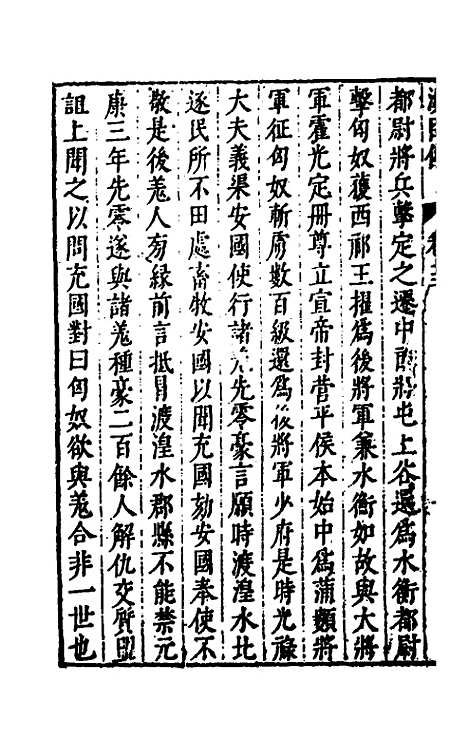 都尉將兵擊定之遷中郎將屯上谷還爲水衡都尉
擊匈奴獲西祁王擢爲後將軍兼水衡如故與大將
軍霍光定册尊立宣帝封營平侯本始中爲蒲類將
軍征匈奴斬虜數百級還爲後將軍少府是時光祿
大夫義渠安國使行諸羌先零豪言願時渡湟水北
逐民所不田處畜牧安國以聞充國劾安國奉使不
敬是後羌人旁緣前言抵冒渡湟水郡縣不能禁元
康三年先零遂與諸羌種豪二百餘人解仇交質盟
詛上聞之以問充國對曰匈奴欲與羌合非一世也